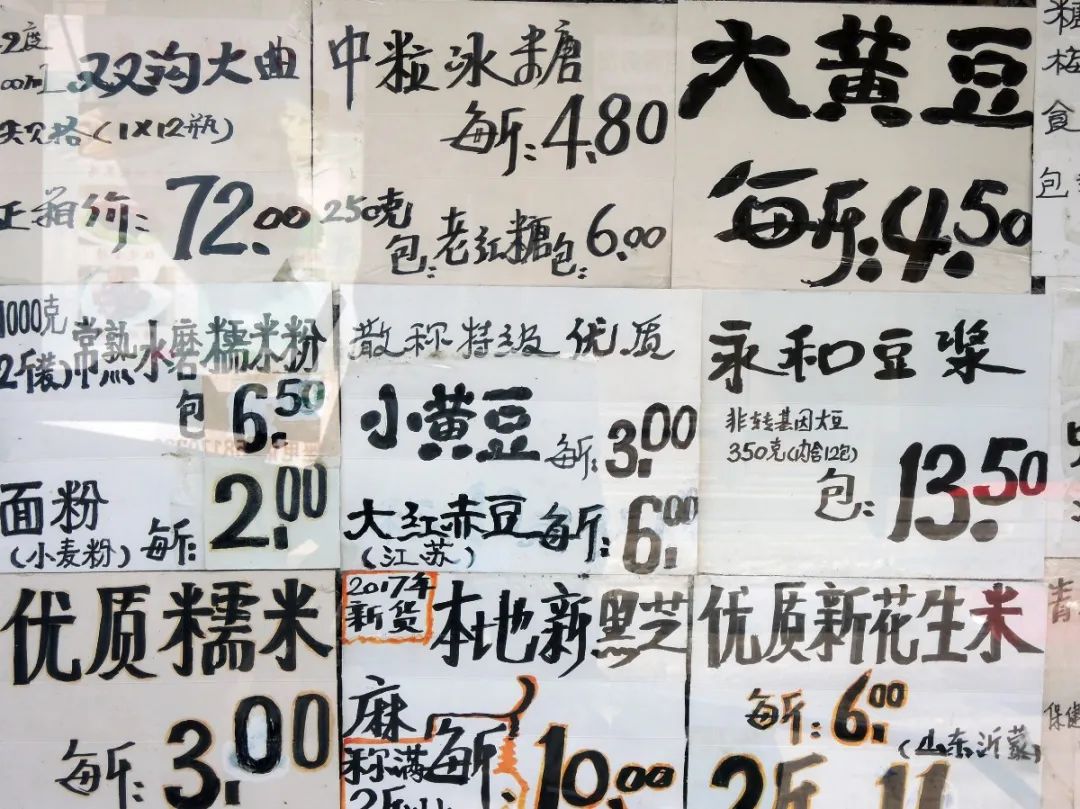 双沟大曲
规格(1×12瓶)
正箱价:72.00
中粒冰糖
每斤:4.80
250克
包:老红糖包:6.00
大黄豆
每斤:4.50
糖
梅
食
包
1000克
常熟水磨糯米粉
2斤装)
包6.50
面粉
(小麦粉)每斤:2.00
散称特级优质
小黄豆每斤:3.00
大红赤豆每斤:6.00
(江苏)
永和豆浆
非转基因大豆
350克(内含12包)
包:13.50
优质糯米
每斤:3.00
2017年
新货
本地新黑芝
麻每斤10.00
称满
优质新花生米
每斤:6.00
(山东沂蒙)
2斤11
青
保健